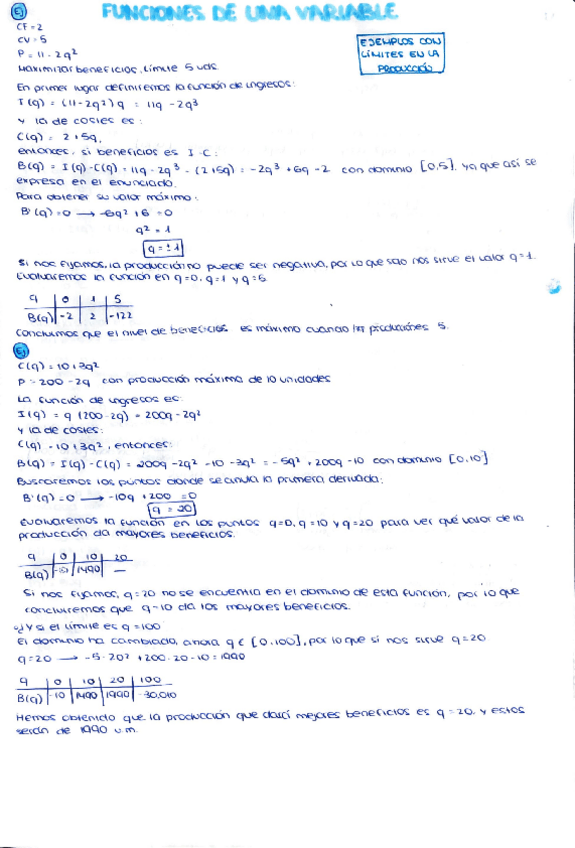 Ej FUNCIONES DE UNA VARIABLE
CF=2
CV=5
P=11-2q²
EJEMPLOS CON
LÍMITES EN LA
PRODUCCIÓN
Maximizar beneficios, límite 5 uds.
En primer lugar definiremos la función de ingresos:
I(q) = (11-2q²)q = 11q - 2q³
y la de costes es:
C(q) = 2+5q,
entonces, si beneficios es I-C:
B(q) = I(q)-C(q) = 11q-2q³-(2+5q) = -2q³+6q-2 con dominio [0,5], ya que así se
expresa en el enunciado.
Para obtener su valor máximo:
B'(q)=0 → -6q²+6=0
q²=1
q=±1
Si nos fijamos, la producción no puede ser negativa, por lo que solo nos sirve el valor q=1.
Evaluaremos la función en q=0, q=1 y q=5.
q 0 1 5
B(q) -2 2 -122
Concluimos que el nivel de beneficios es máximo cuando la producción es 5.
Ej
C(q)=10+3q²
P=200-2q con producción máxima de 10 unidades
La función de ingresos es:
I(q) = q(200-2q) = 200q-2q²
y la de costes:
C(q)=10+3q², entonces:
B(q) = I(q)-C(q) = 200q-2q²-10-3q² = -5q²+200q-10 con dominio [0,10]
Buscaremos los puntos donde se anula la primera derivada:
B'(q)=0 → -10q+200=0
q=20
Evaluaremos la función en los puntos q=0, q=10 y q=20 para ver qué valor de la
producción da mayores beneficios.
q 0 10 20
B(q) -10 1490 —
Si nos fijamos, q=20 no se encuentra en el dominio de esta función, por lo que
concluiremos que q=10 da los mayores beneficios.
¿Y si el límite es q=100
El dominio ha cambiado, ahora q∈[0,100], por lo que si nos sirve q=20
q=20 → -5·20²+200·20-10=1990
q 0 10 20 100
B(q) -10 1490 1990 -30,010
Hemos obtenido que la producción que dará mejores beneficios es q=20, y estos
serán de 1990 u.m.